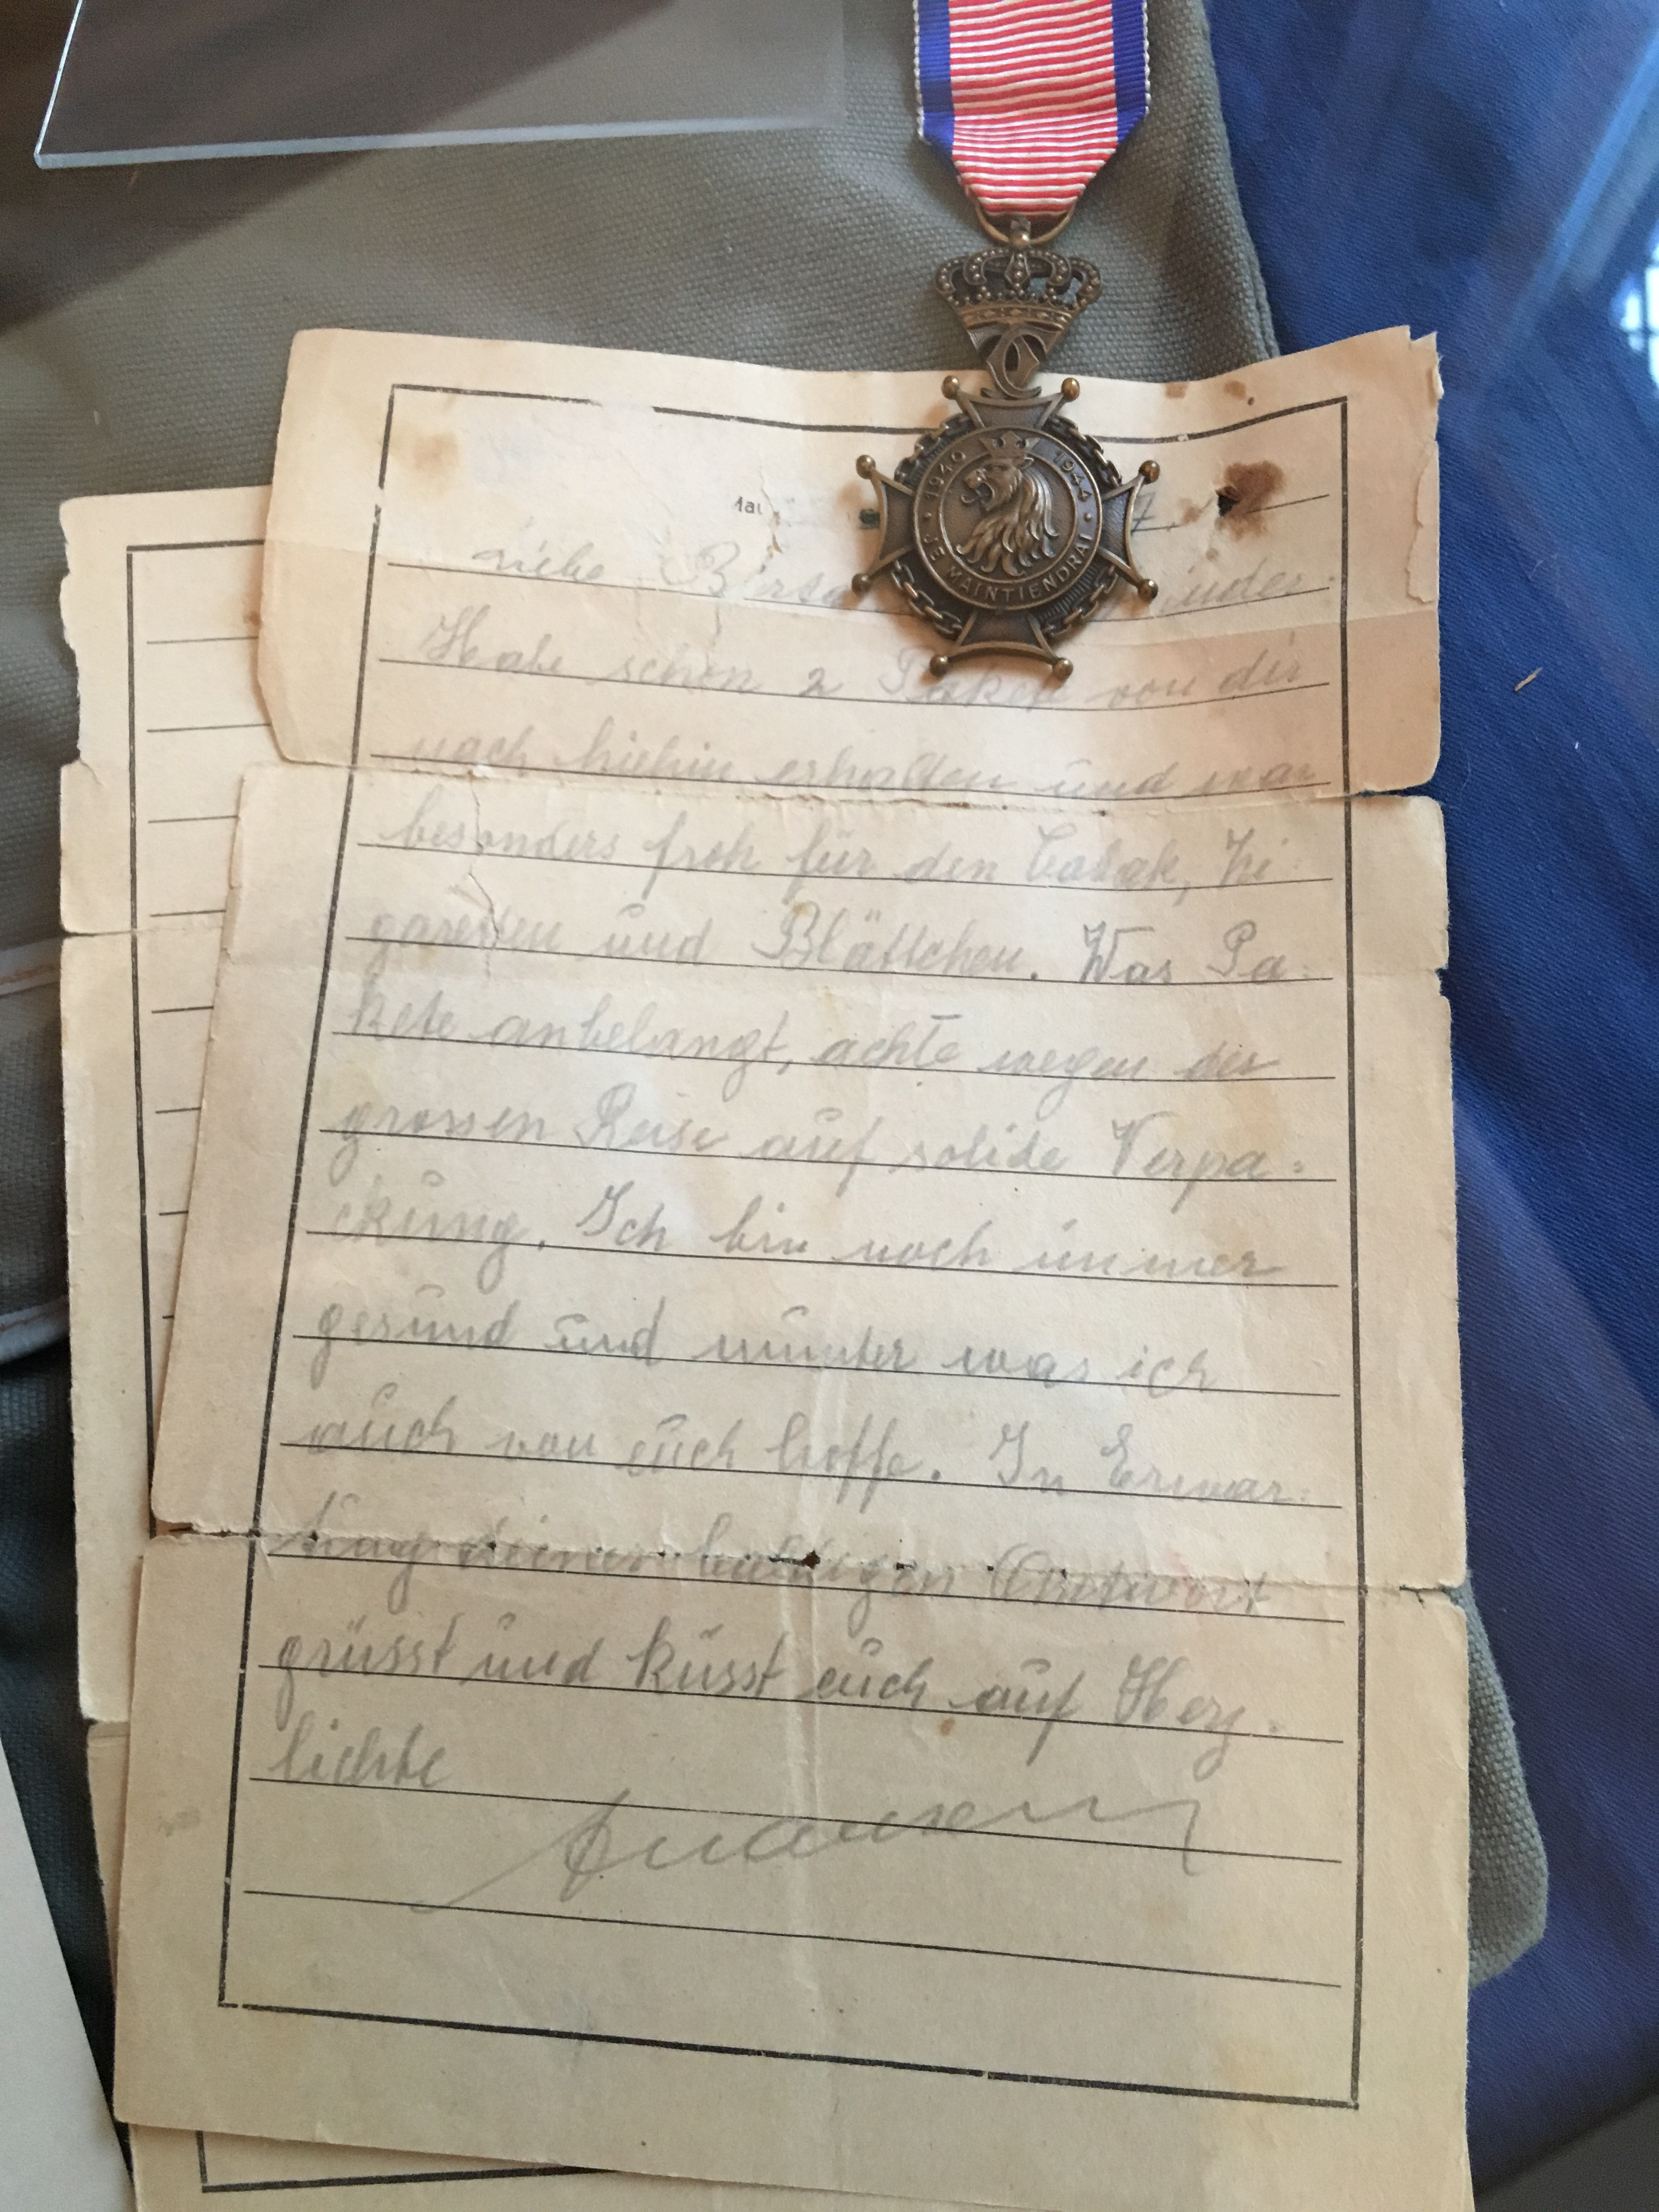 1940 1944
JE MAINTIENDRAI
7.
Habe schon 2 von dir
nach hiehin erhalten und war
besonders froh für den Tabak, Zi-
garetten und Blättchen. Was Pa-
kete anbelangt, achte wegen der
grossen Reise auf solide Verpa-
ckung. Ich bin noch immer
gesund und munter was ich
auch von euch hoffe. In Erwar-
tung deiner baldigen Antwort
grüsst und küsst euch auf Herz-
lichste